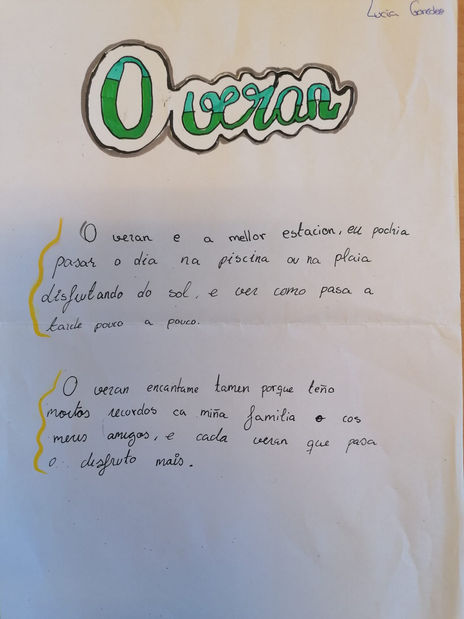 Lucia
O veran
O veran e a mellor estacion, eu podria
pasar o dia na piscina ou na plaia
disfrutando do sol, e ver como pasa a
tarde pouco a pouco.
O veran encantame tamen porque teño
moitos recordos ca miña familia e cos
meus amigos, e cada veran que pasa
o disfruto mais.